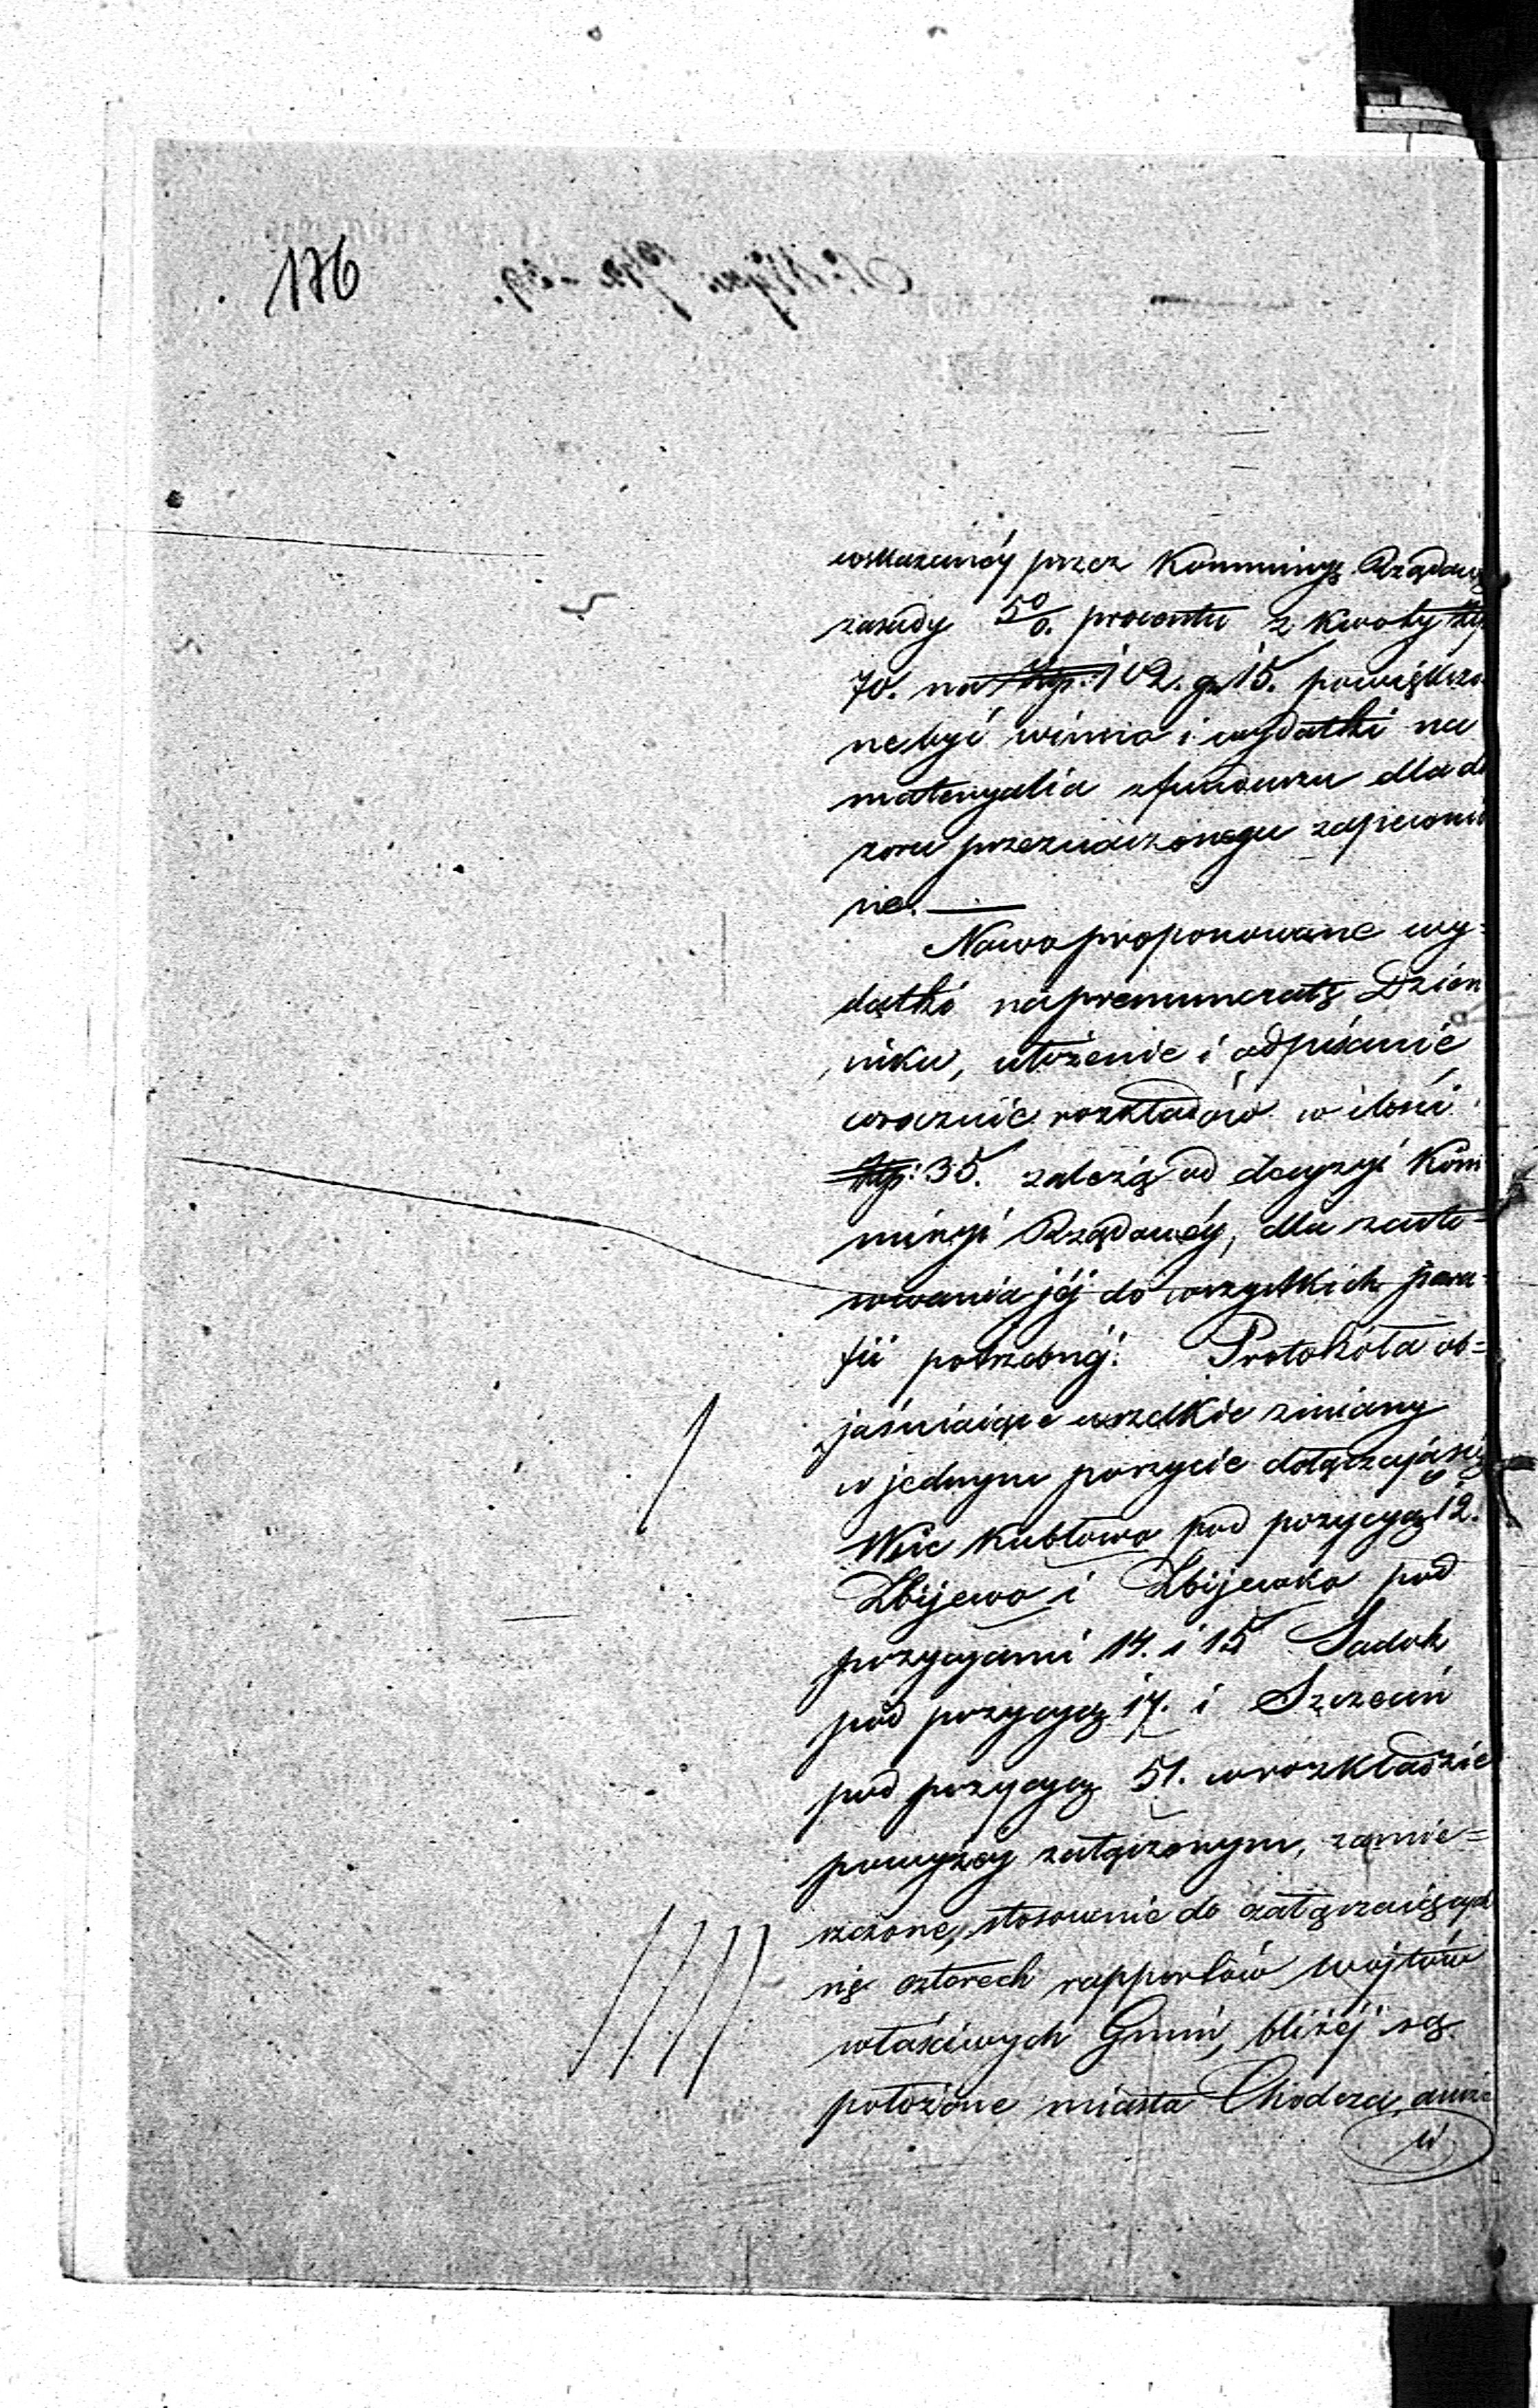 176
wskazanéy przez Kommissyę Rządową
zasady 5%. procentu z kwoty Złp
70. na Złp. 102. gr 15. powiększo
ne być winno i wydatki na
materyalia z funduszu dla do
zoru przeznaczonego zapewnio
ne. —
Nowo proponowane wy=
datki na prenumeratę Dzien
nika, ułożenie i odpisanie
corocznie rozkładów w ilości
Złp: 35. zależą od decyzyi Kom
missyi Rządowéy, dla zasto=
sowania jéj do wszystkich para=
fii potrzebnéj. Protokóła ob=
jaśniaiące wszelkie zmiany
w jednym poszycie dołączają się
Wsie Kubłowo pod pozycyą 12.
Zbijewo i Zbijewko pod
pozycyami 14. i 15 Sadok
pod pozycyą 17. i Szczecin
pod pozycyą 51. w rozkładzie
powyżéy załączonym, zamie=
szczone, stosownie do załączaiących
się czterech rapportów Wójtów
właściwych Gmin, bliżéj są
położone miasta Chodcza, aniże
w